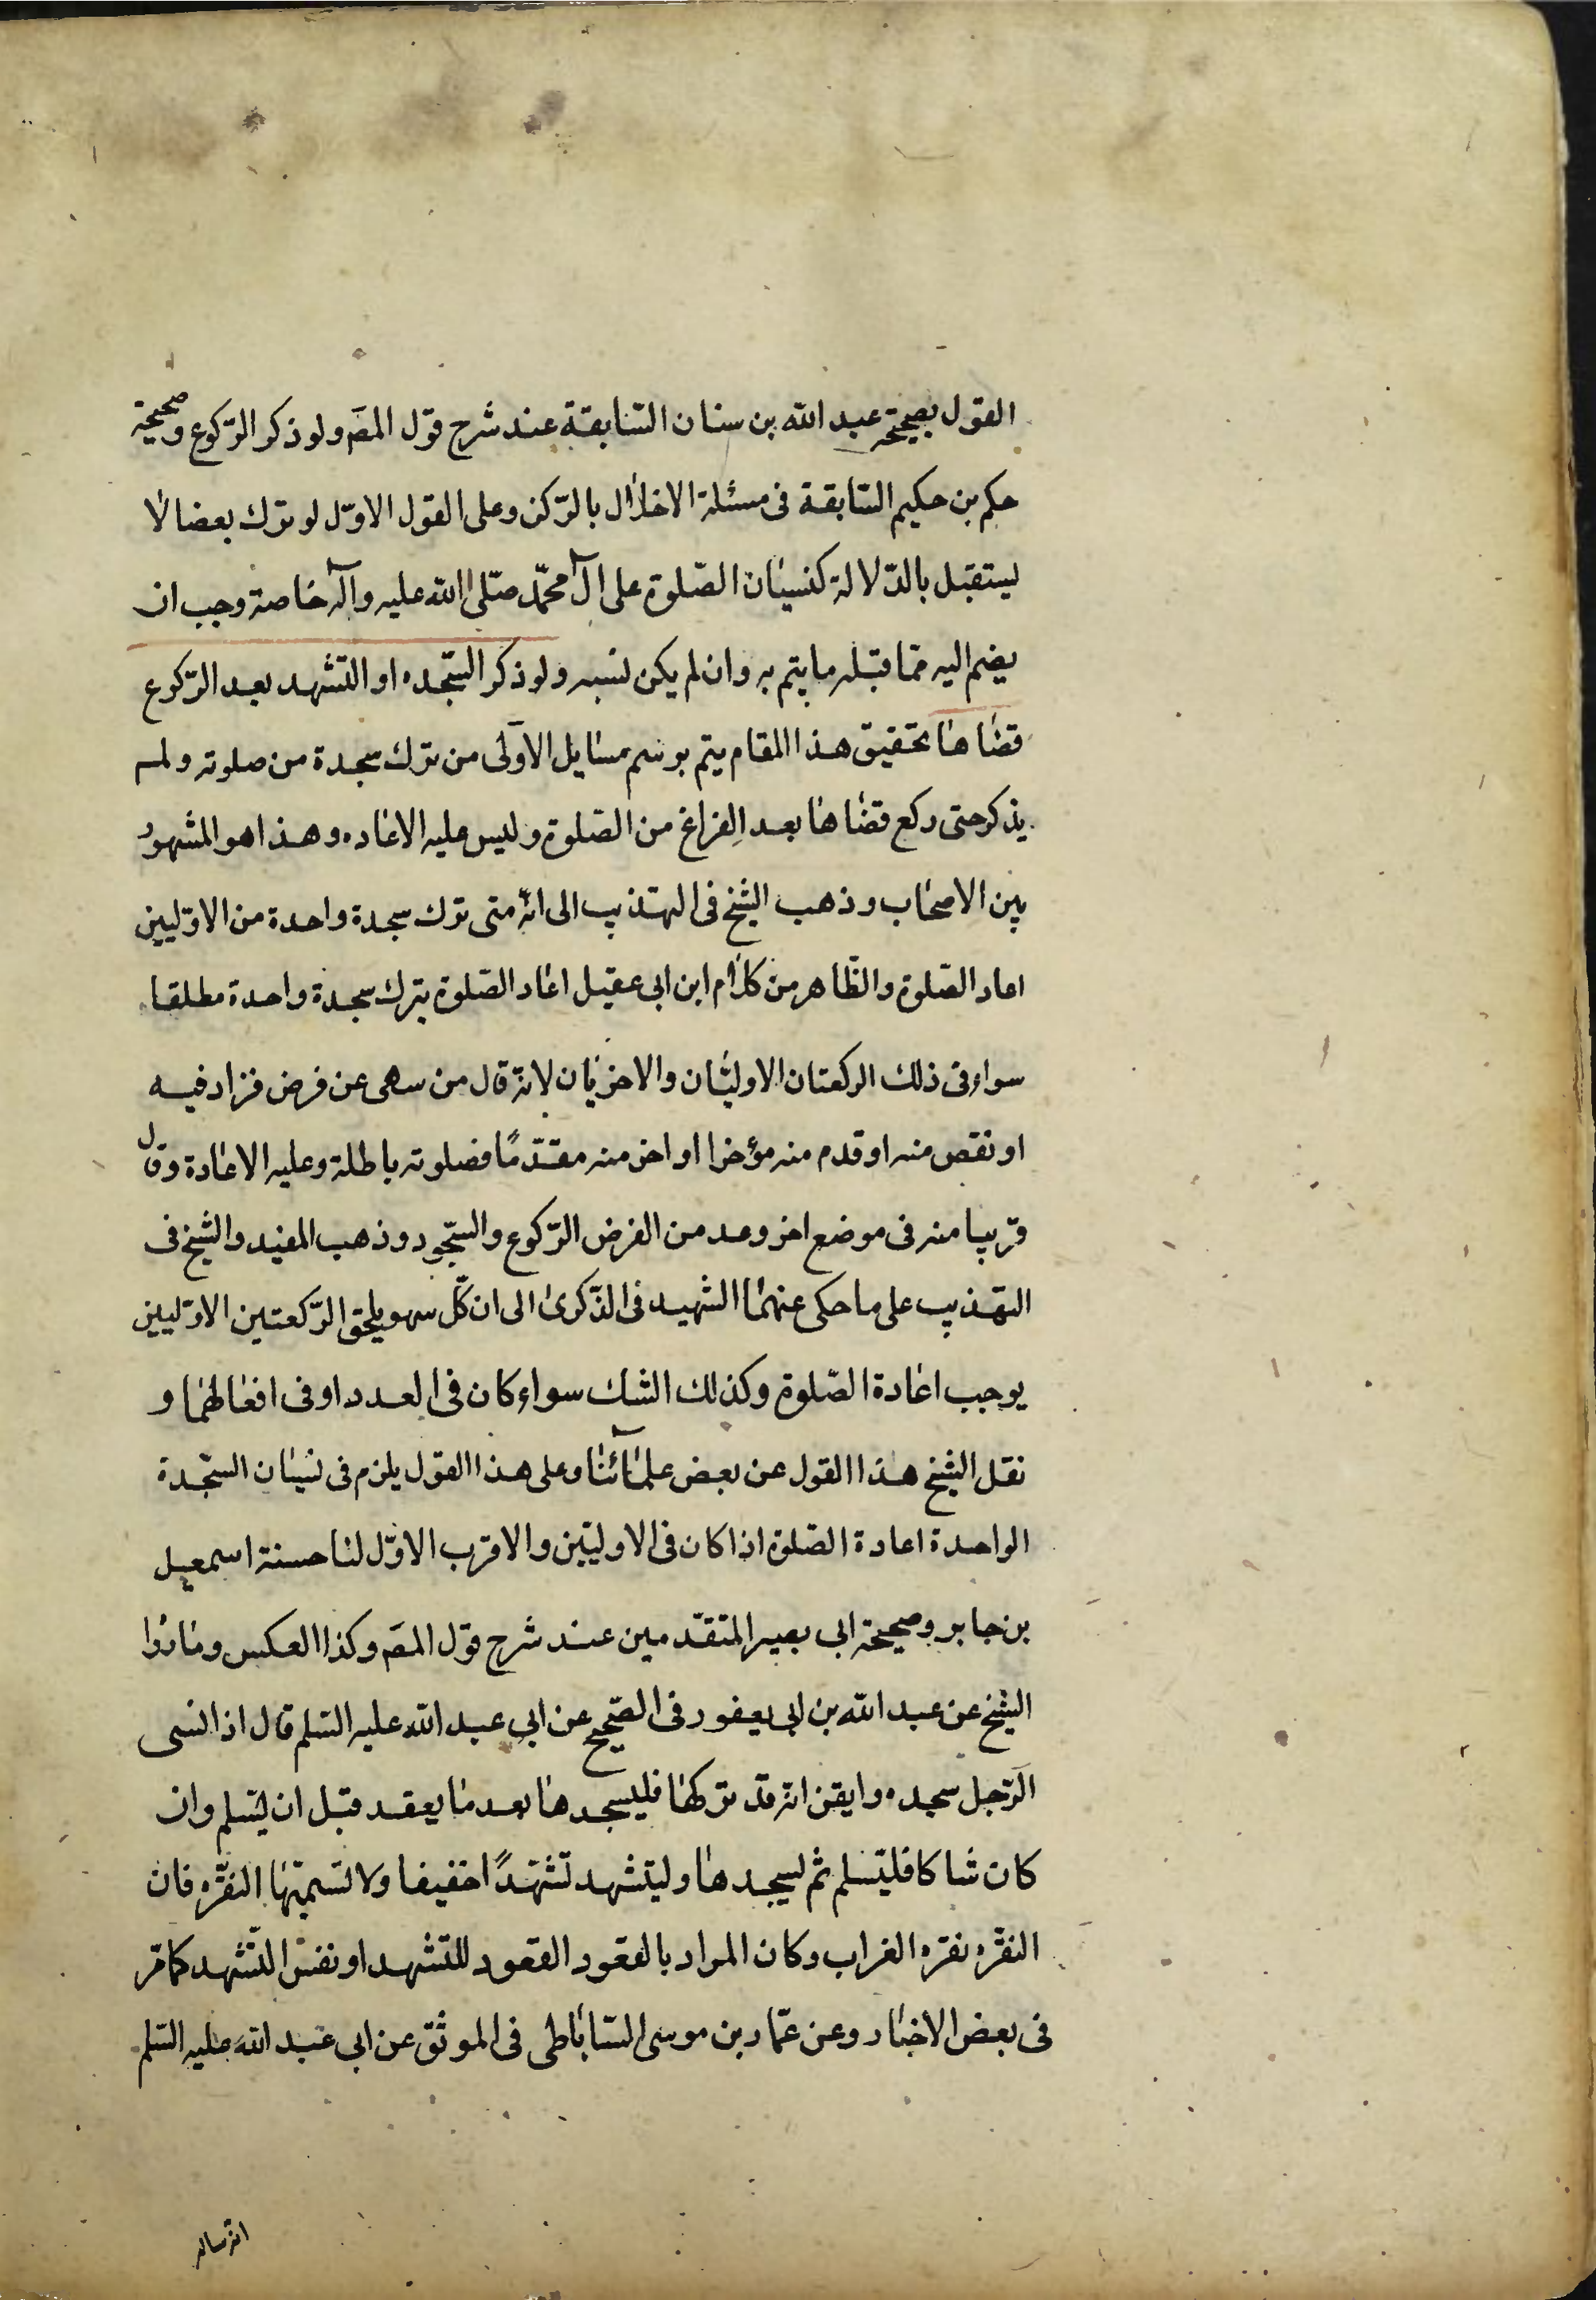 القول بصحيحة عبد الله بن سنان السّابقة عند شرح قول المصَ ولو ذكر الرّكوع وصحيحة
حكم بن حكيم السّابقة فى مسئلة الاخلال بالرّكن وعلى القول الاوّل لو ترك بعضا لا
يستقبل بالدّلالة كنسيان الصّلوة على آل محمّد صلّى الله عليه وآله خاصة وجب ان
يضم اليه مما قبله ما يتم به وان لم يكن نسبه ولو ذكر السّجده او التشهد بعد الرّكوع
قضاها تحقيق هذا المقام يتم برسم مسايل الاولى من ترك سجدة من صلوته ولم
يذكر حتى ركع قضاها بعد الفراغ من الصّلوة وليس عليه الاعاده وهذا هو المشهور
بين الاصحاب وذهب الشّيخ فى التهذيب الى انّه متى ترك سجدة واحدة من الاوّليين
اعاد الصّلوة والظّاهر من كلام ابن ابى عقيل اعاد الصّلوة بترك سجدة واحدة مطلقا
سواء فى ذلك الركعتان الاوليان والاخريان لانّه قال من سهى عن فرض فزاد فيه
او نقص منه او قدم منه مؤخرا او اخر منه مقدّمًا فصلوته باطلة وعليه الاعادة وقال
قريبا منه فى موضع اخر وعد من الفرض الرّكوع والسّجود وذهب المفيد والشيخ فى
التهذيب على ما حكى عنهما الشهيد فى الذّكرى الى ان كلّ سهو يلحق الرّكعتين الاوّليين
يوجب اعادة الصّلوة وكذلك الشك سواء كان فى العدد او فى افعالهما و
نقل الشيخ هذا القول عن بعض علمآئنا وعلى هذا القول يلزم فى نسيان السّجدة
الواحدة اعادة الصّلوة اذا كان فى الاوليين والاقرب الاوّل لنا حسنة اسمعيل
بن جابر وصحيحة ابى بصير المتقدّمين عند شرح قول المصَ وكذا العكس وما رواه
الشيخ عن عبد الله بن ابى يعفور فى الصّحيح عن ابى عبد الله عليه السّلم قال اذا نسى
الرّجل سجده وايقن انّه قد تركها فليسجدها بعد ما يقعد قبل ان يسّلم وان
كان شاكا فليسّلم ثم ليسجدها وليتشهد تشهّدًا خفيفا ولا تسمّيها النقّره فان
النقّره نقره الغراب وكان المراد بالقعود القعود للتشهد او نفس التّشهد كما مرّ
فى بعض الاخبار وعن عمّار بن موسى السّاباطى فى الموثّق عن ابى عبد الله عليه السّلم
انّه ساله